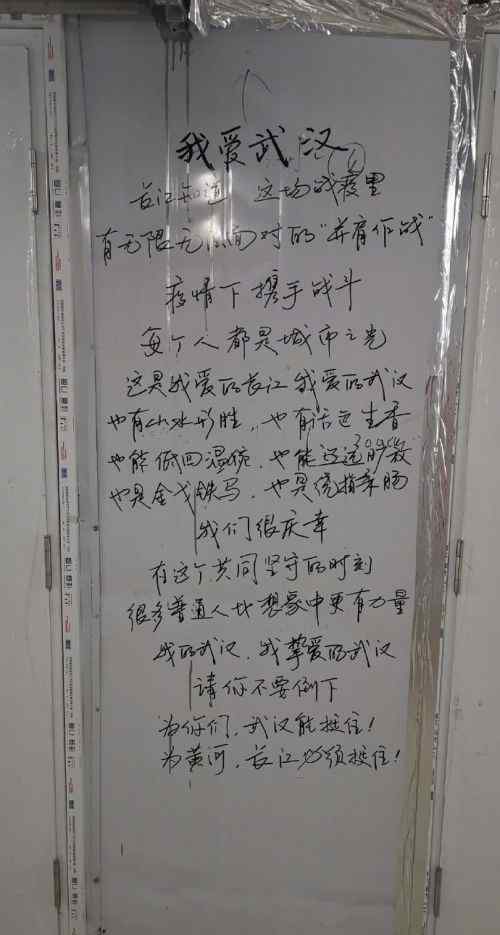 我爱武汉
长江知道 这场战疫里
有无限无 面对的“并肩作战”
疫情下携手战斗
每个人都是城市之光
这是我爱的长江 我爱的武汉
也有山水形胜，也有活色生香
也能低回温婉，也能
也是金戈铁马，也是绕指柔肠
我们很庆幸
在这个共同坚守的时刻
很多普通人比想象中更有力量
我的武汉，我挚爱的武汉
请你不要倒下
为你们，武汉能挺住！
为黄河，长江必须挺住！